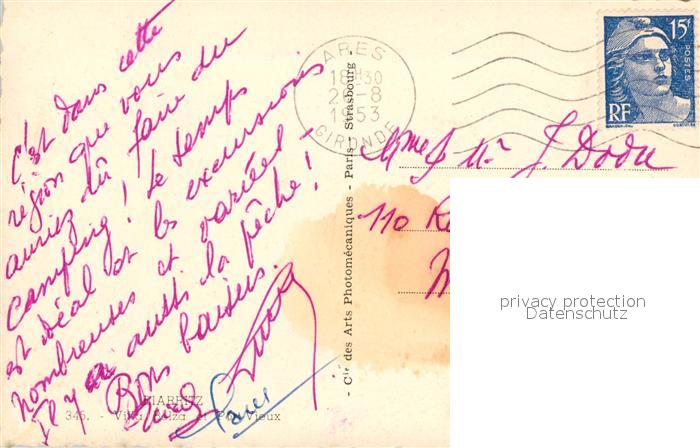 C'est dans cette
région que vous
auriez dû faire du
camping! Le temps
est idéal et les excursions
nombreuses et variées!
Il y a aussi la pêche!
Bons baisers.
BIARRITZ
345. - Villa Belza et Port-Vieux
- Cie des Arts Photomécaniques - Paris - Strasbourg -
ARES
18H30
-8
1953
GIRONDE
15F
POSTES
RF
Mme & Mr J. Dodu
110
privacy protection
Datenschutz